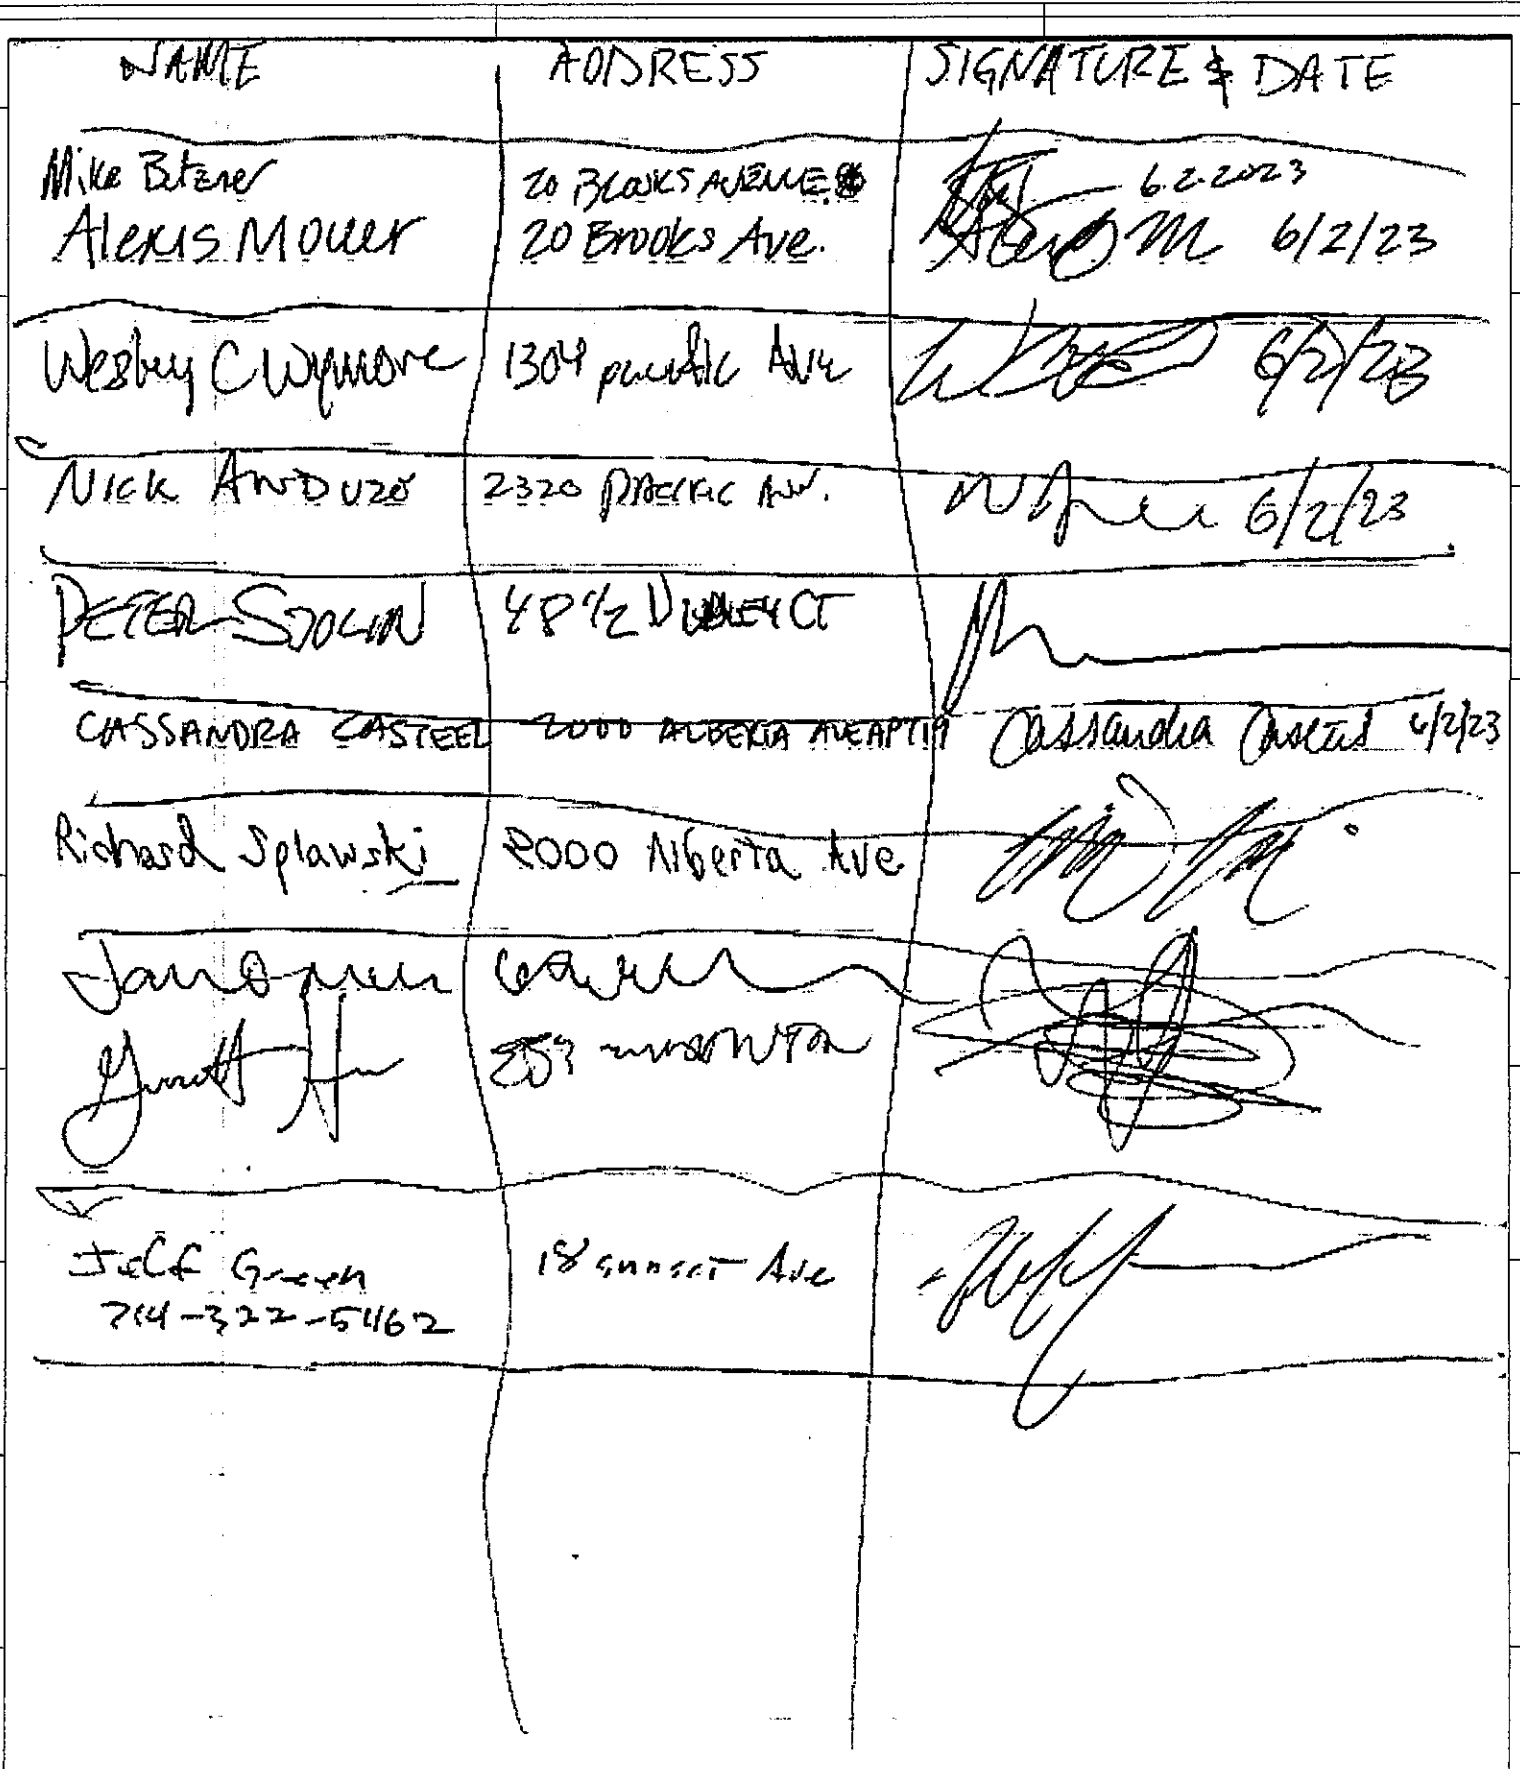 NAME ADDRESS SIGNATURE & DATE
Mike Bitzer 20 BROOKS AVENUE 6.2.2023
Alexis Moller 20 Brooks Ave. 6/2/23
Wesley C Wymore 1304 pacific Ave 6/2/23
NICK ANDUZO 2320 PACIFIC AVE. 6/2/23
PETER SJOLIN 48 1/2 DUDLEY CT
CASSANDRA CASTEEL 2000 ALBERTA AVE APT 19 Cassandra Casteel 6/2/23
Richard Splawski 2000 Alberta Ave.
Garrett
Jeff Green 18 sunset Ave
714-322-5462